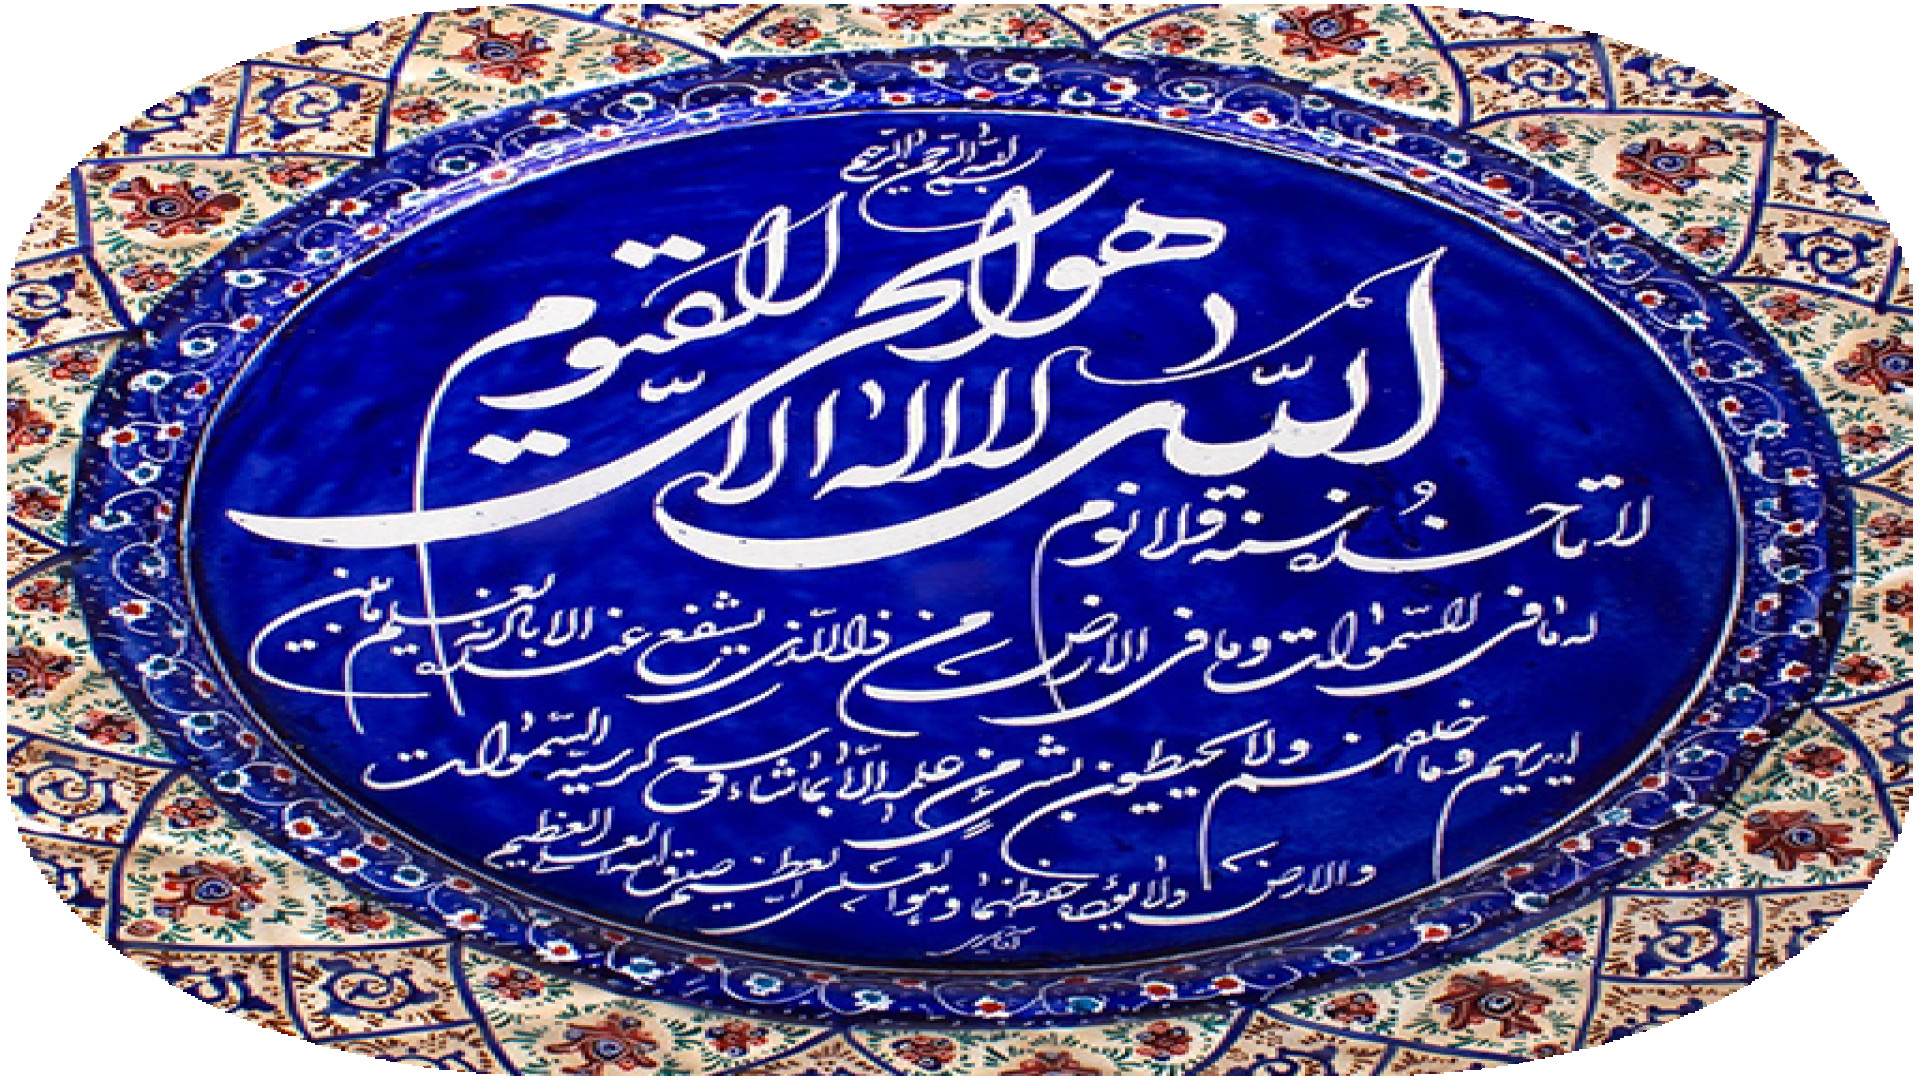 بسم الله الرحمن الرحیم
الله لا اله الا
هو الحی القیوم
لا تاخذه سنة و لا نوم
له ما فی السموات و ما فی الارض من ذا الذی یشفع عنده الا باذنه یعلم ما بین
ایدیهم و ما خلفهم و لا یحیطون بشیء من علمه الا بما شاء وسع کرسیه السموات
و الارض و لا یؤده حفظهما و هو العلی العظیم صدق الله العلی العظیم